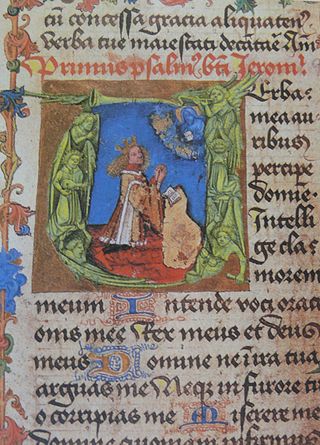 tū concessa gracia aliquaten⁹
Verba tue maiestati decātate Am̄
Primus psalm⁹ bt̄i Jeroni⁹
Verba
mea au-
ribus
percipe
domīe.
Intelli
ge cla-
morem
meum Intende voci orati
onis mee Rex meus et deus
meus Domine ne ī ira tua
arguas me Neqz in furore tu
o corripias me Miserere me
domine quoniam infirmus